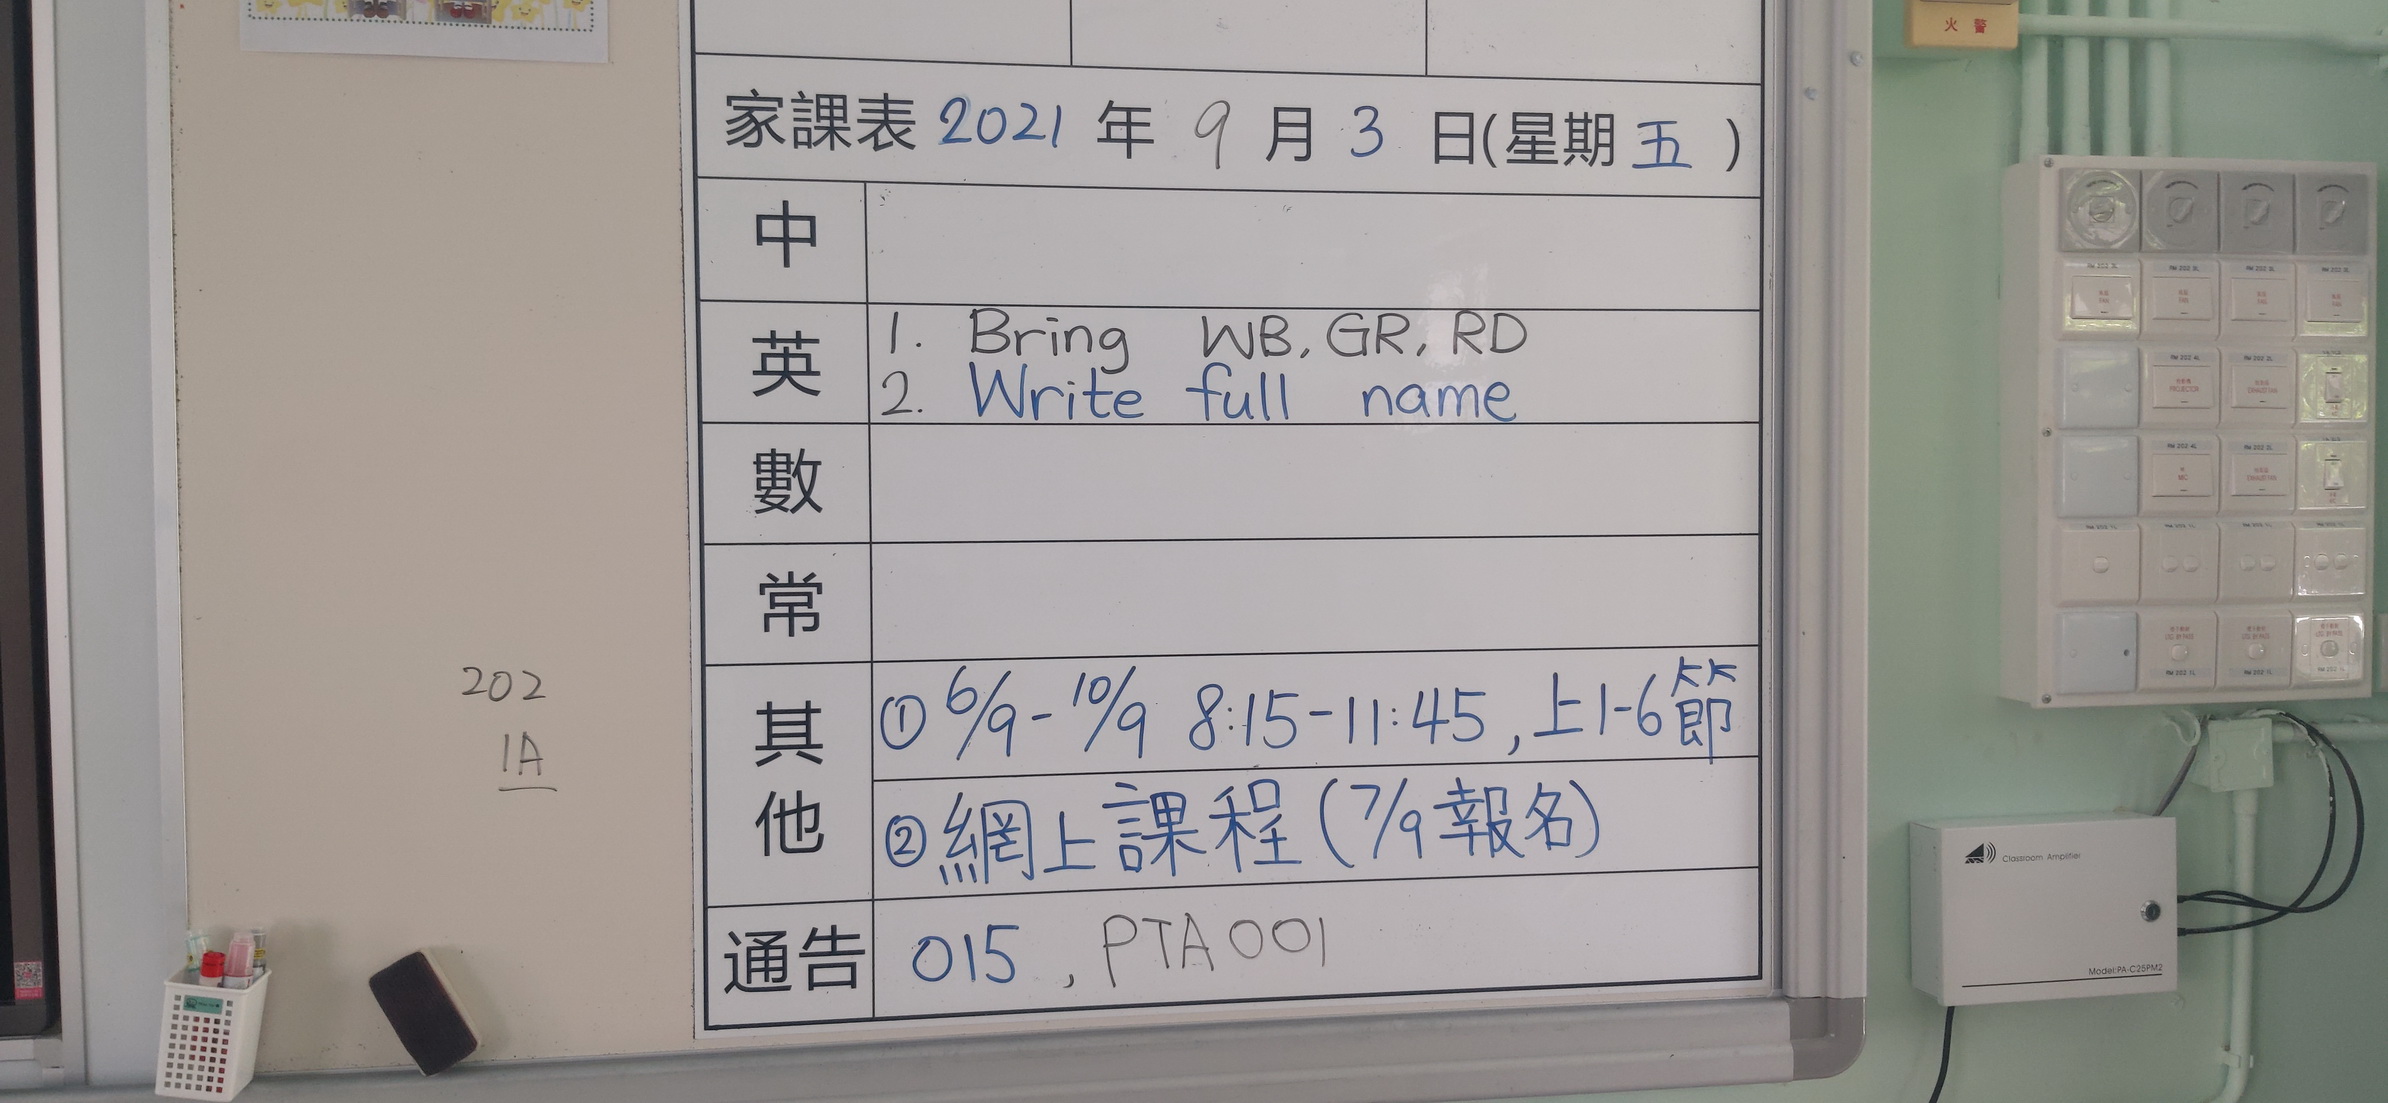 火 警
家課表 2021 年 9 月 3 日(星期 五 )
中
英
1. Bring WB, GR, RD
2. Write full name
數
常
其他
① 6/9 - 10/9 8:15-11:45, 上1-6節
② 網上課程 (7/9 報名)
通告 015, PTA 001
202
1A
Classroom Amplifier
Model:PA-C25PM2